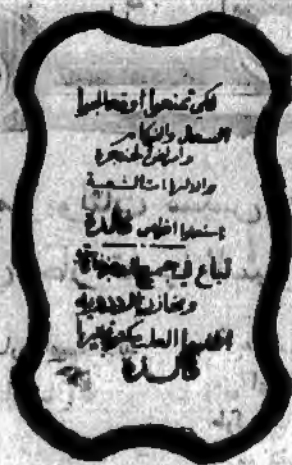 لكي تمنعوا أو تعالجوا
السعال والزكام
وأمراض الحنجرة
والالتهابات الشعبية
استعملوا اقراص ڤالدة
تباع في جميع الصيدليات
ومخازن الادوية
اطلبوا العلب
ڤالدة